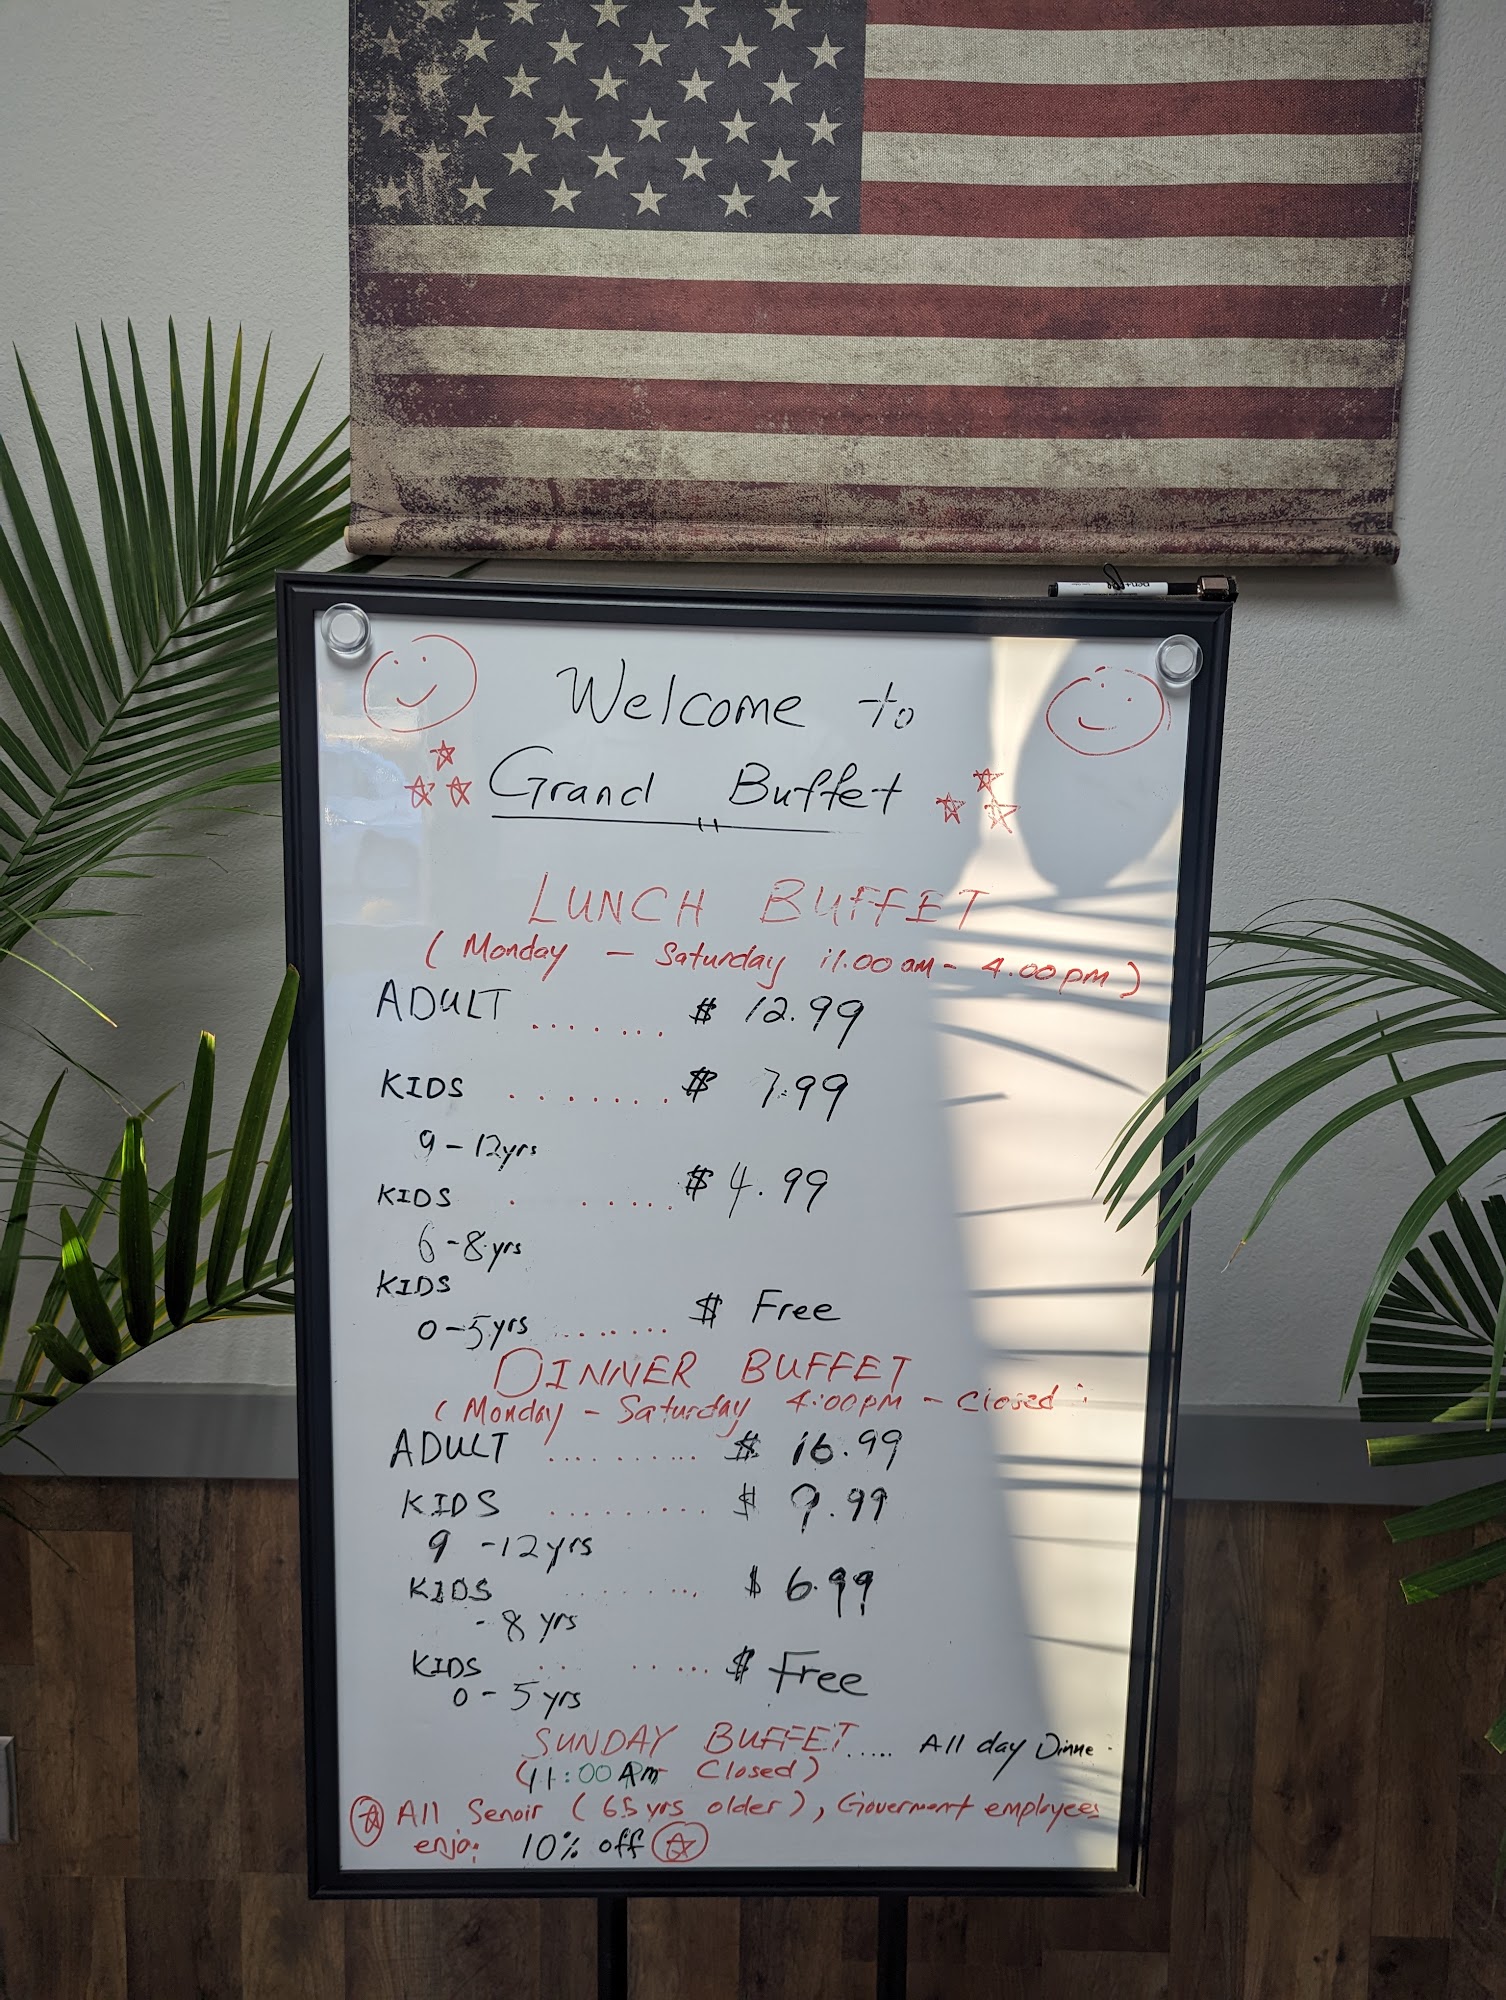 Welcome to
Grand Buffet
LUNCH BUFFET
( Monday - Saturday 11.00 am - 4.00 pm )
ADULT ....... $ 12.99
KIDS ....... $ 7.99
9 - 12 yrs
KIDS . ..... $ 4.99
6 - 8 yrs
KIDS
0 - 5 yrs ....... $ Free
DINNER BUFFET
( Monday - Saturday 4:00 pm - Closed
ADULT ......... $ 16.99
KIDS ......... $ 9.99
9 - 12 yrs
KIDS ........ $ 6.99
- 8 yrs
KIDS .. ..... $ Free
0 - 5 yrs
SUNDAY BUFFET..... All day Dinne
(11:00 Am Closed)
All Senoir ( 65 yrs older ), Goverment employees
enjo 10% off